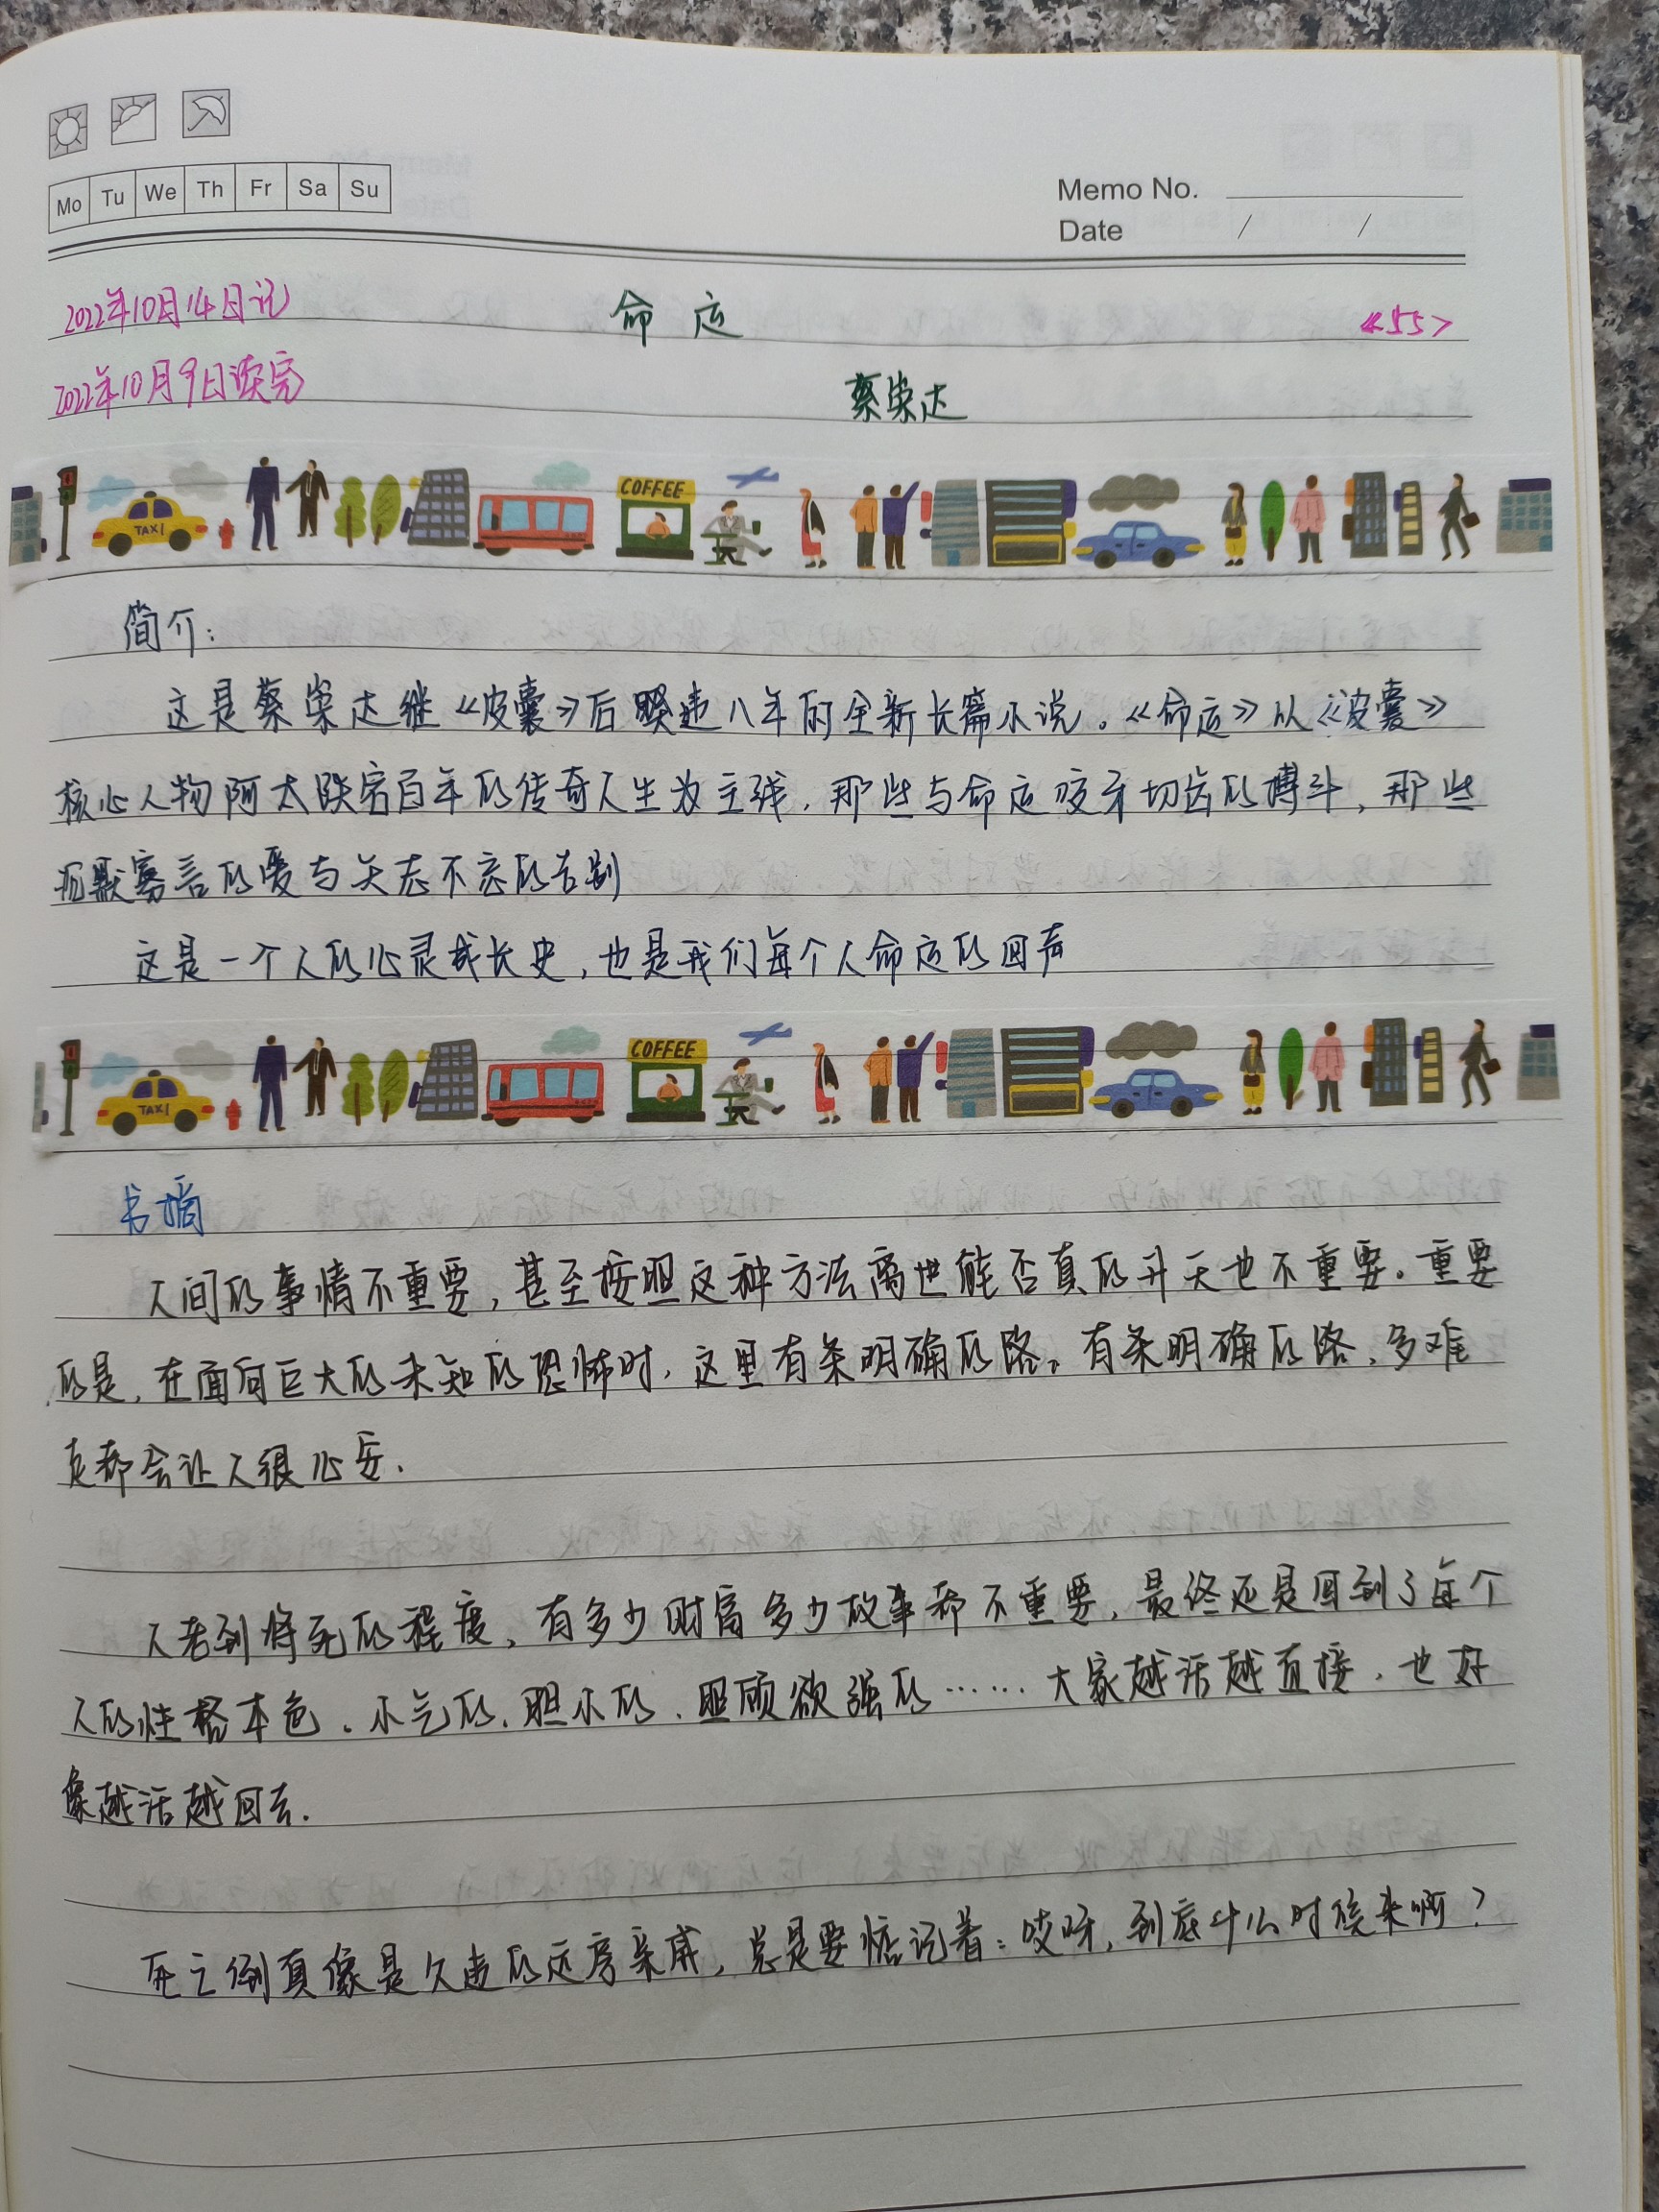 Mo Tu We Th Fr Sa Su
Memo No.
Date / /
2022年10月14日记 命运 《55>
2022年10月9日读完 蔡崇达
TAXI COFFEE
简介:
这是蔡崇达继《皮囊》后睽违八年的全新长篇小说。《命运》以《皮囊》
核心人物阿太跌宕百年的传奇人生为主线,那些与命运咬牙切齿的搏斗,那些
沉默寡言的爱与矢志不忘的告别
这是一个人的心灵成长史,也是我们每个人命运的回声
TAXI COFFEE
书摘
人间的事情不重要,甚至按照这种方法离世能否真的升天也不重要。重要
的是,在面向巨大的未知的恐怖时,这里有条明确的路。有条明确的路,多难
走都会让人很心安.
人老到将死的程度,有多少财富多少故事都不重要,最终还是回到了每个
人的性格本色。小气的,胆小的,照顾欲强的……大家越活越直接,也好
像越活越回去.
死亡倒真像是久违的远房亲戚,总是要惦记着:哎呀,到底什么时候来啊?